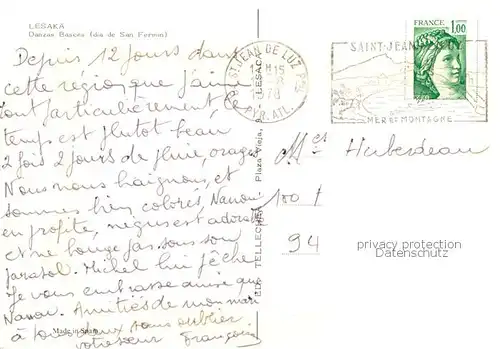 LESAKA
Danzas Bascas (día de San Fermín)
Depuis 12 jours dans
cette région que j'aime
tout particulièrement, le
temps est plutôt beau
2 fois 2 jours de pluie, orages
Nous nous baignons, et
sommes bien colorés, Nanou
en profite,
et ne bouge pas sous son
parasol. Michel lui pêche
Je vous embrasse ainsi que
Nanou. Amitiés de mon mari
à tous deux sans oublier
votre sœur Françoise
Made in Spain
EDI. TELLECHEA Plaza Vieja, LESACA
ST JEAN DE LUZ
15
78
PYR. ATL.
SAINT JEAN DE LUZ
MER et MONTAGNE
FRANCE
1,00
Huberdeau
100
94
privacy protection
Datenschutz